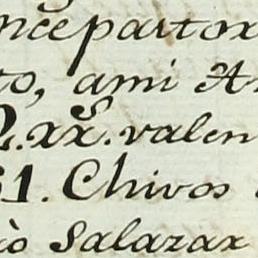 ncepastor
to, ami A
Q.xx.valen
61. Chivos
iò Salazar